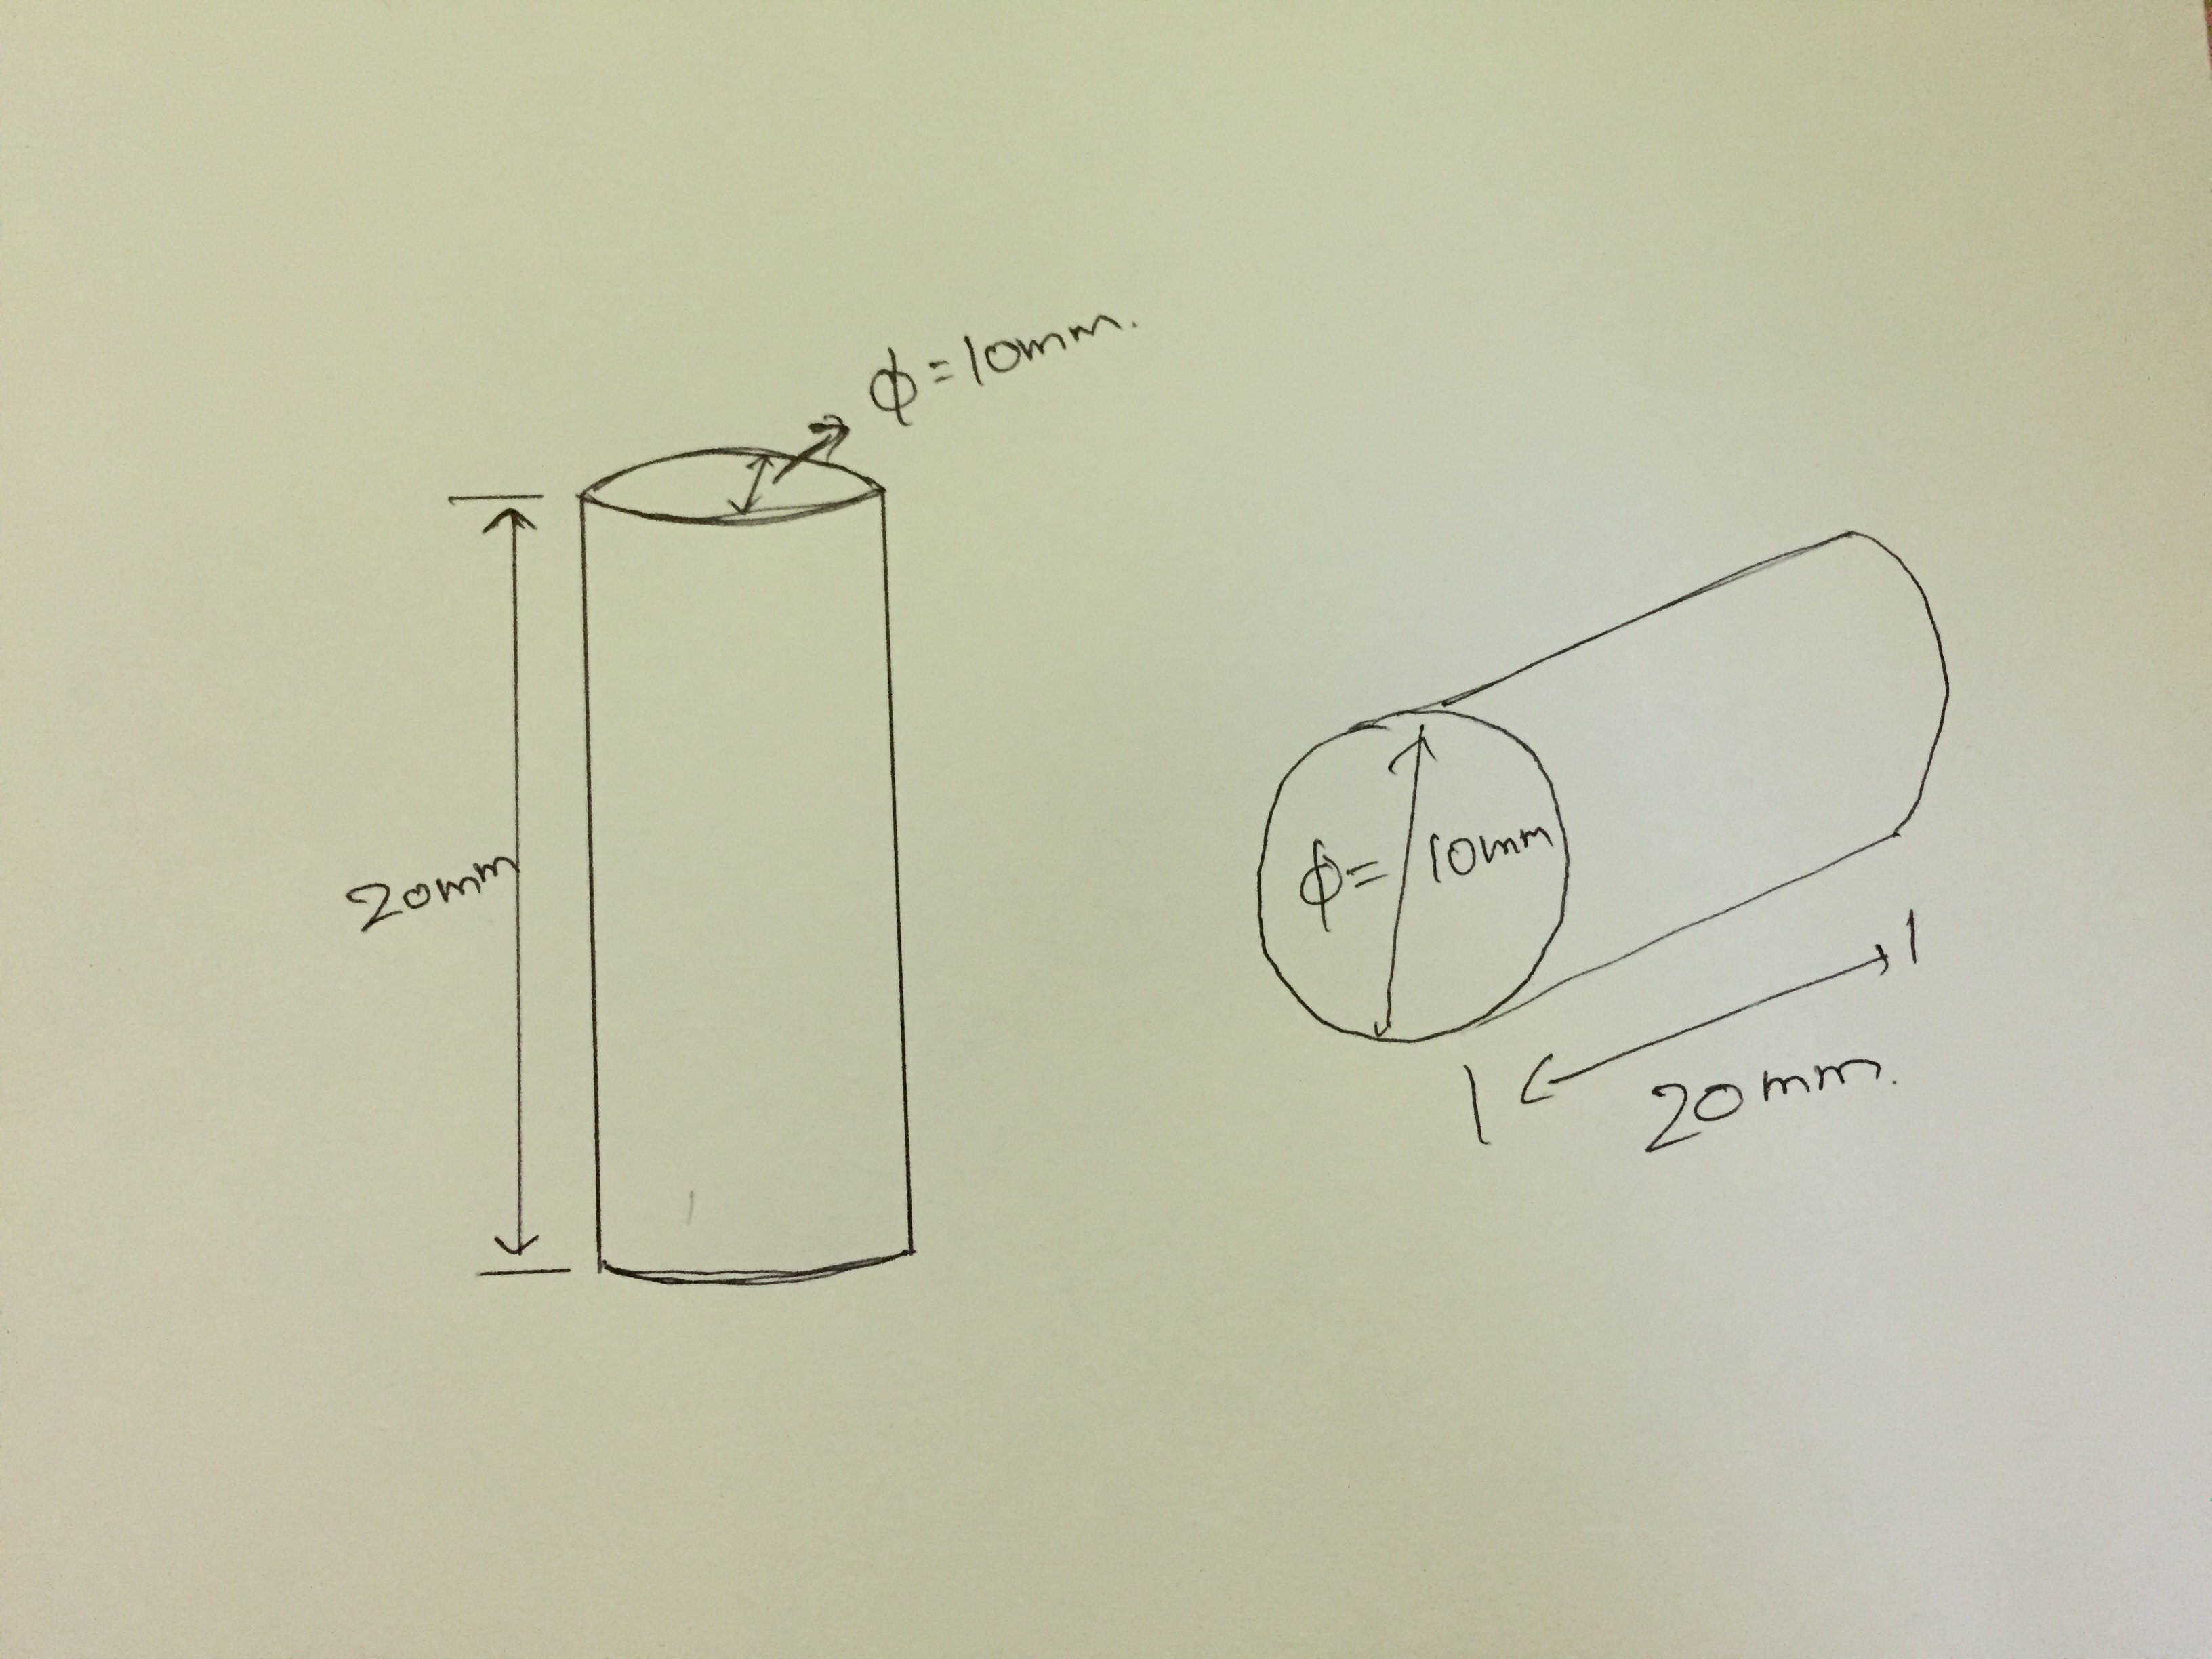 20mm
ϕ=10mm.
ϕ= 10mm
20mm.